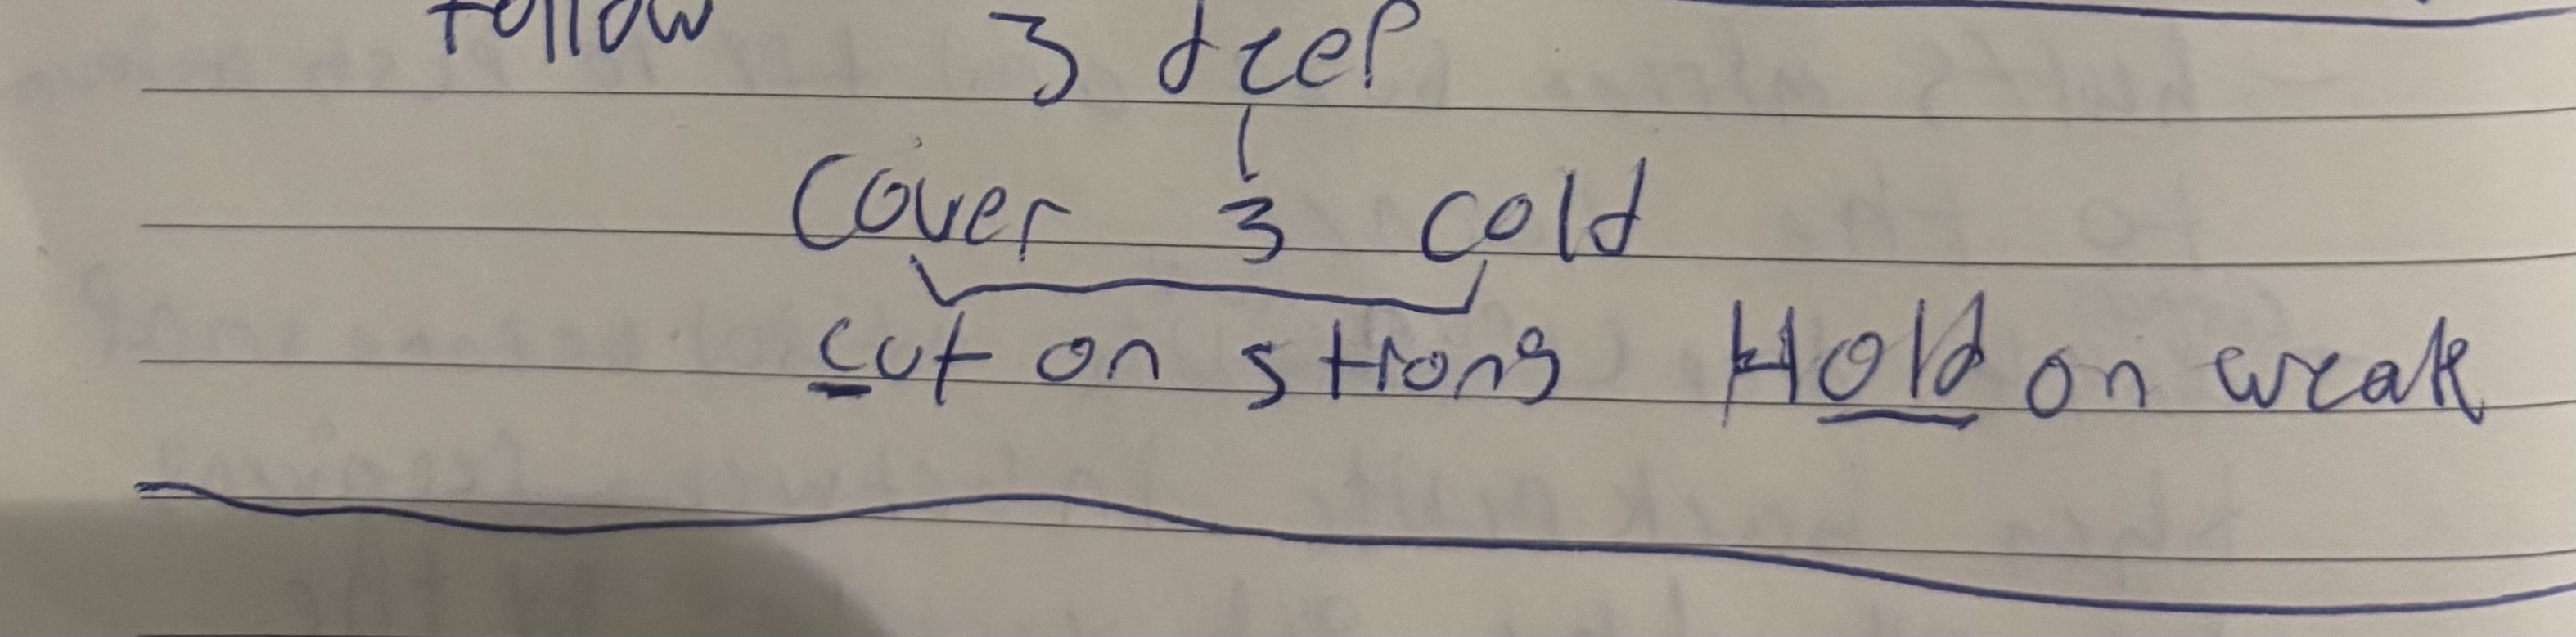 follow 3 deep
Cover 3 cold
cut on strong Hold on weak